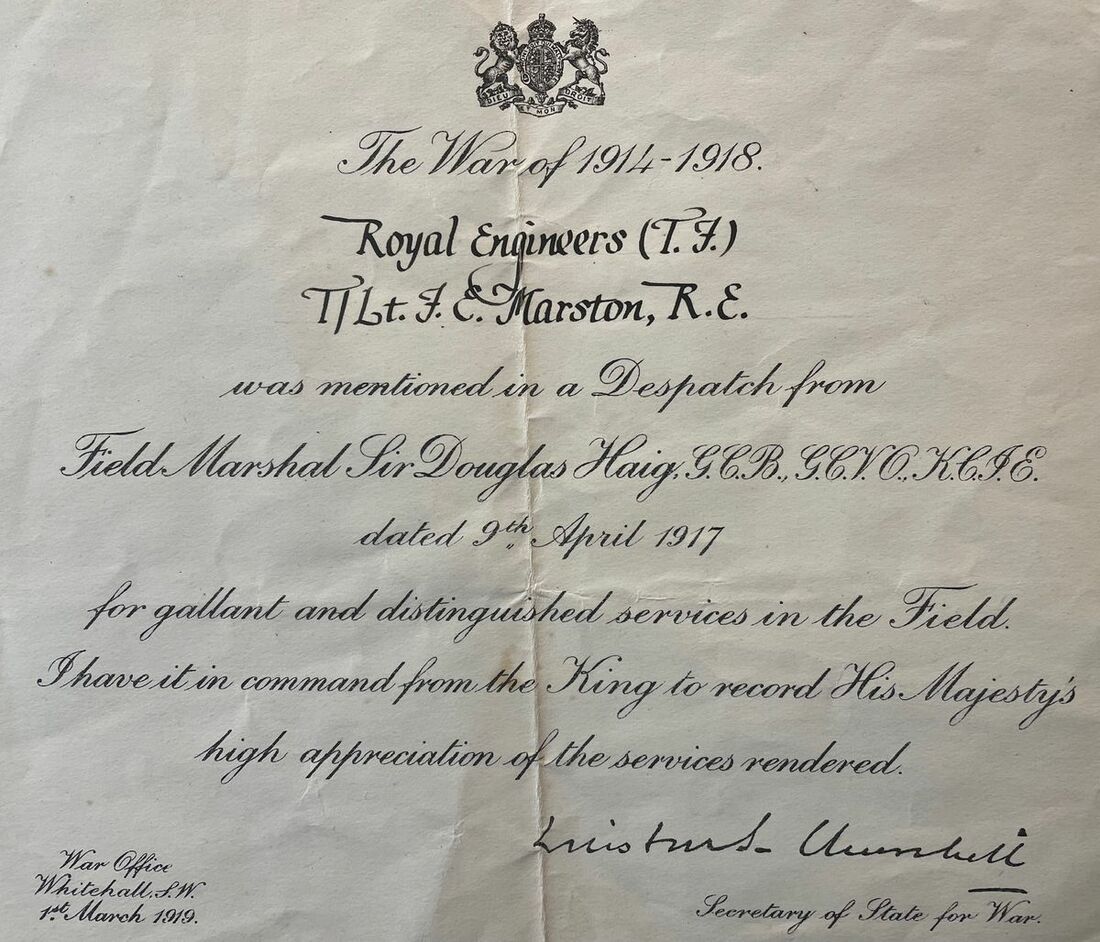 DIEU ET MON DROIT
The War of 1914-1918.
Royal Engineers (T.F.)
T/Lt. F. E. Marston, R.E.
was mentioned in a Despatch from
Field Marshal Sir Douglas Haig, G.C.B., G.C.V.O., K.C.I.E.
dated 9th April 1917
for gallant and distinguished services in the Field.
I have it in command from the King to record His Majesty's
high appreciation of the services rendered.
Winston S. Churchill
War Office
Whitehall, S.W.
1st March 1919.
Secretary of State for War.